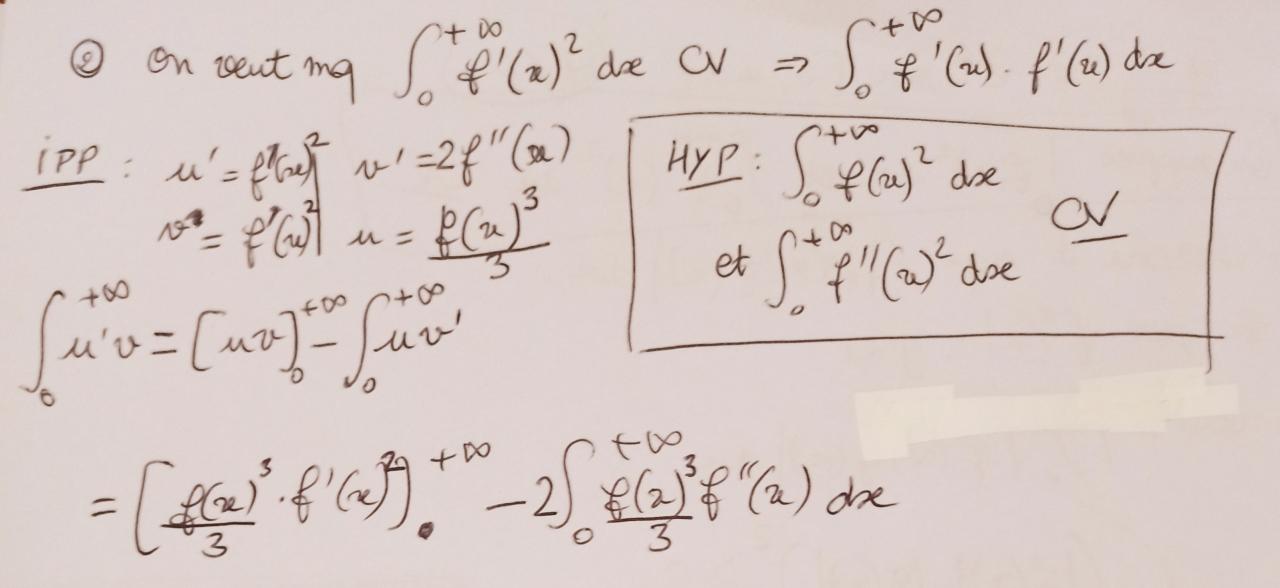 ② On veut mq ∫₀^{+∞} f'(x)² dx CV ⇒ ∫₀^{+∞} f'(x). f'(x) dx
IPP : u' = f'(x)² v' = 2f''(x)
v = f'(x)² u = f(x)³/3
HYP : ∫₀^{+∞} f(x)² dx
et ∫₀^{+∞} f''(x)² dx CV
∫₀^{+∞} u'v = [uv]₀^{+∞} - ∫₀^{+∞} uv'
= [f(x)³/3 . f'(x)²]₀^{+∞} - 2∫₀^{+∞} f(x)³/3 f''(x) dx